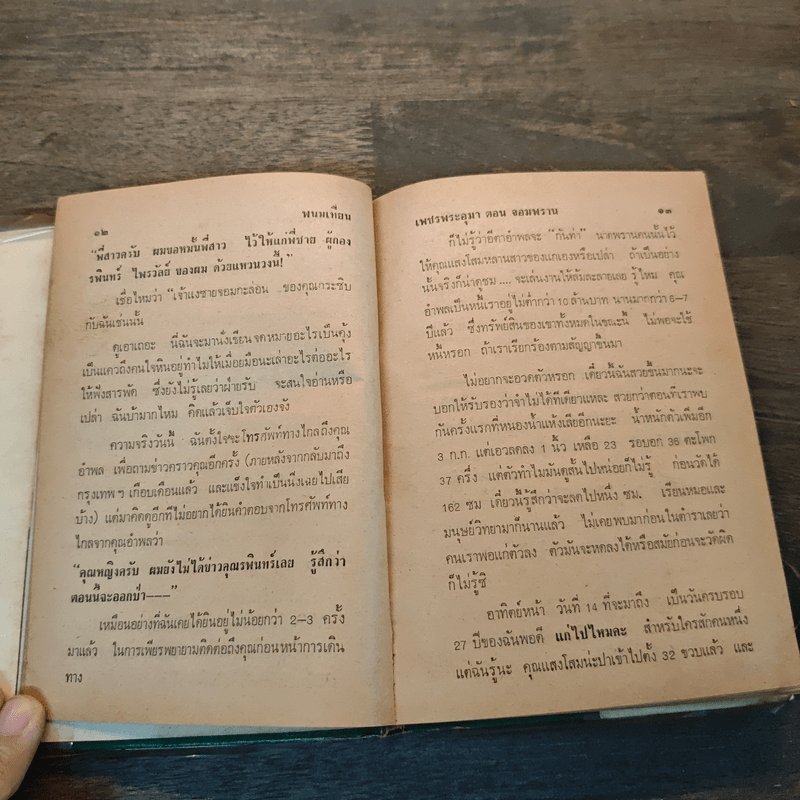 ๑๒
พนมเทียน
"พี่สาวครับ ผมขอหมั้นพี่สาว ไว้ให้แก่พี่ชาย ผู้กอง
รพินทร์ ไพรวัลย์ ของผม ด้วยแหวนวงนี้!"
เชื่อไหมว่า "เจ้าแงซายจอมกะล่อน ของคุณกระซิบ
กับฉันเช่นนั้น
ดูเอาเถอะ นี่ฉันจะมานั่งเขียนจดหมายอะไรเป็นคุ้ง
เป็นแควถึงคนใจหินอยู่ทำไมให้เมื่อยมือนะเล่าอะไรต่ออะไร
ให้ฟังสารพัด ซึ่งยังไม่รู้เลยว่าฝ่ายรับ จะสนใจอ่านหรือ
เปล่า ฉันบ้ามากไหม คิดแล้วเจ็บใจตัวเองจัง
ความจริงวันนี้ ฉันตั้งใจจะโทรศัพท์ทางไกลถึงคุณ
อำพล เพื่อถามข่าวคราวคุณอีกครั้ง (ภายหลังจากกลับมาถึง
กรุงเทพฯ เกือบเดือนแล้ว และแข็งใจทำเป็นนิ่งเฉยไปเสีย
บ้าง) แต่มาคิดดูอีกทีไม่อยากได้ยินคำตอบจากโทรศัพท์ทาง
ไกลจากคุณอำพลว่า
"คุณหญิงครับ ผมยังไม่ได้ข่าวคุณรพินทร์เลย รู้สึกว่า
ตอนนี้จะออกป่า---"
เหมือนอย่างที่ฉันเคยได้ยินอยู่ไม่น้อยกว่า 2-3 ครั้ง
มาแล้ว ในการเพียรพยายามติดต่อถึงคุณก่อนหน้าการเดิน
ทาง
เพชรพระอุมา ตอน จอมพราน
๑๓
ก็ไม่รู้ว่าอีตาอำพลจะ "กันท่า" นาดพรานคนนั้นไว้
ให้คุณแสงโสมหลานสาวของแกเองหรือเปล่า ถ้าเป็นอย่าง
นั้นจริงก็น่าดูชม .... จะเล่นงานให้ล้มละลายเลย รู้ไหม คุณ
อำพลเป็นหนี้เราอยู่ไม่ต่ำกว่า 10 ล้านบาท นานมากกว่า 6-7
ปีแล้ว ซึ่งทรัพย์สินของเขาทั้งหมดในขณะนี้ ไม่พอจะใช้
หนี้หรอก ถ้าเราเรียกร้องตามสัญญาขึ้นมา
ไม่อยากจะอวดตัวหรอก เดี๋ยวนี้ฉันสวยขึ้นมากนะจะ
บอกให้รับรองว่าจำไม่ได้ทีเดียวแหละ สวยกว่าตอนที่เราพบ
กันครั้งแรกที่หนองน้ำแห้งเสียอีกนะยะ น้ำหนักตัวเพิ่มอีก
3 ก.ก. แต่เอวลดลง 1 นิ้ว เหลือ 23 รอบอก 36 ตะโพก
37 ครึ่ง แต่ตัวทำไมมันดูสั้นไปหน่อยก็ไม่รู้ ก่อนวัดได้
162 ซม เดี๋ยวนี้รู้สึกว่าจะลดไปหนึ่ง ซม. เรียนหมอและ
มนุษย์วิทยามาก็นานแล้ว ไม่เคยพบมาก่อนในตำราเลยว่า
คนเราพอแก่ตัวลง ตัวมันจะหดลงได้หรือสมัยก่อนจะวัดผิด
ก็ไม่รู้ซิ
อาทิตย์หน้า วันที่ 14 ที่จะมาถึง เป็นวันครบรอบ
27 ปีของฉันพอดี แก่ไปไหมคะ สำหรับใครสักคนหนึ่ง
แต่ฉันรู้นะ คุณแสงโสมน่ะปาเข้าไปตั้ง 32 ขวบแล้ว และ